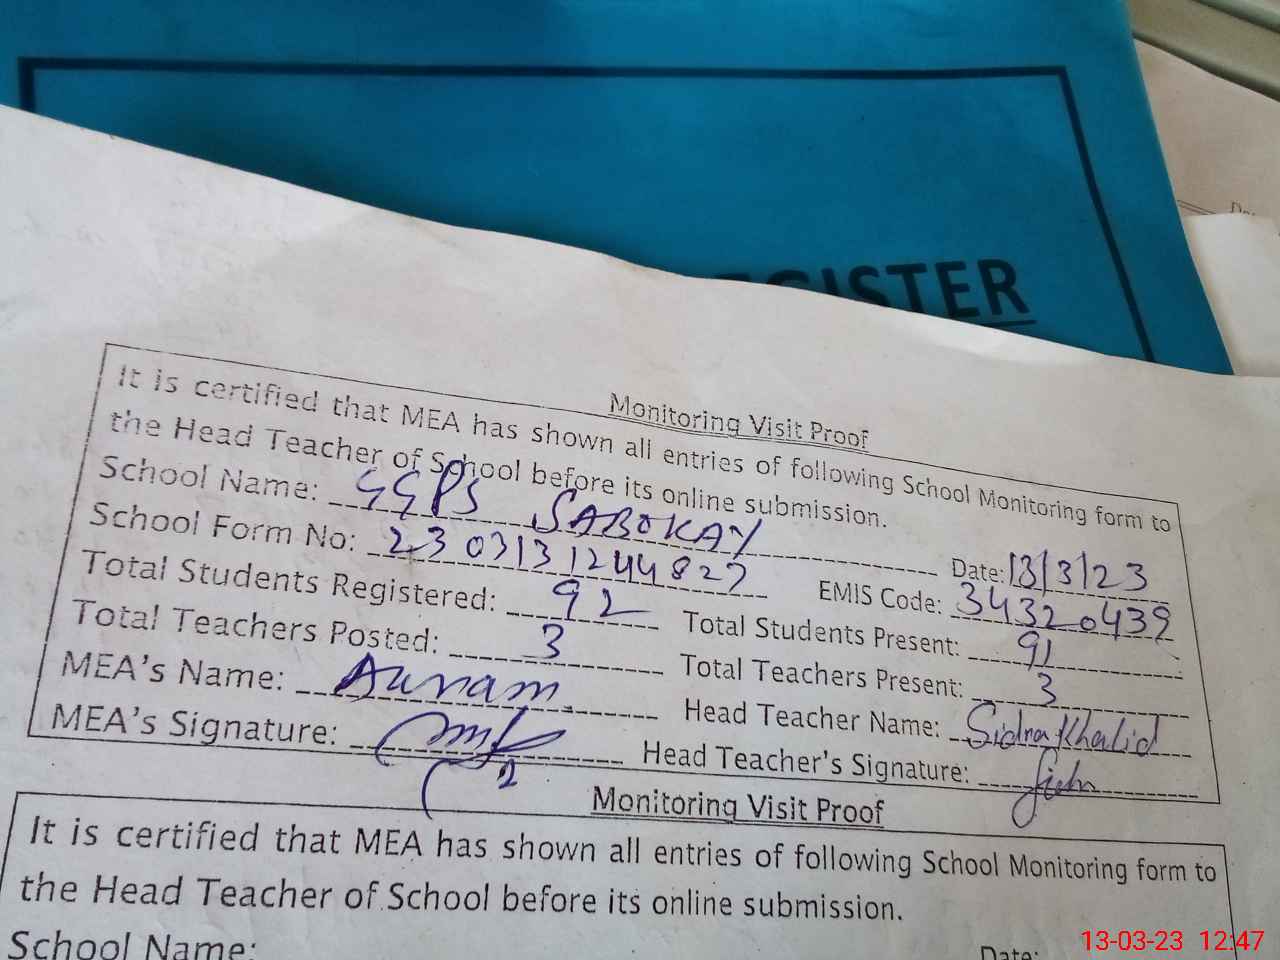 REGISTER
Monitoring Visit Proof
It is certified that MEA has shown all entries of following School Monitoring form to
the Head Teacher of School before its online submission.
School Name: GGPS SABOKAY Date: 13/3/23
School Form No: 2303131244827 EMIS Code: 34320439
Total Students Registered: 92 Total Students Present: 91
Total Teachers Posted: 3 Total Teachers Present: 3
MEA's Name: Head Teacher Name: Sidra Khalid
MEA's Signature: Head Teacher's Signature:
Monitoring Visit Proof
It is certified that MEA has shown all entries of following School Monitoring form to
the Head Teacher of School before its online submission.
School Name: Date:
13-03-23 12:47